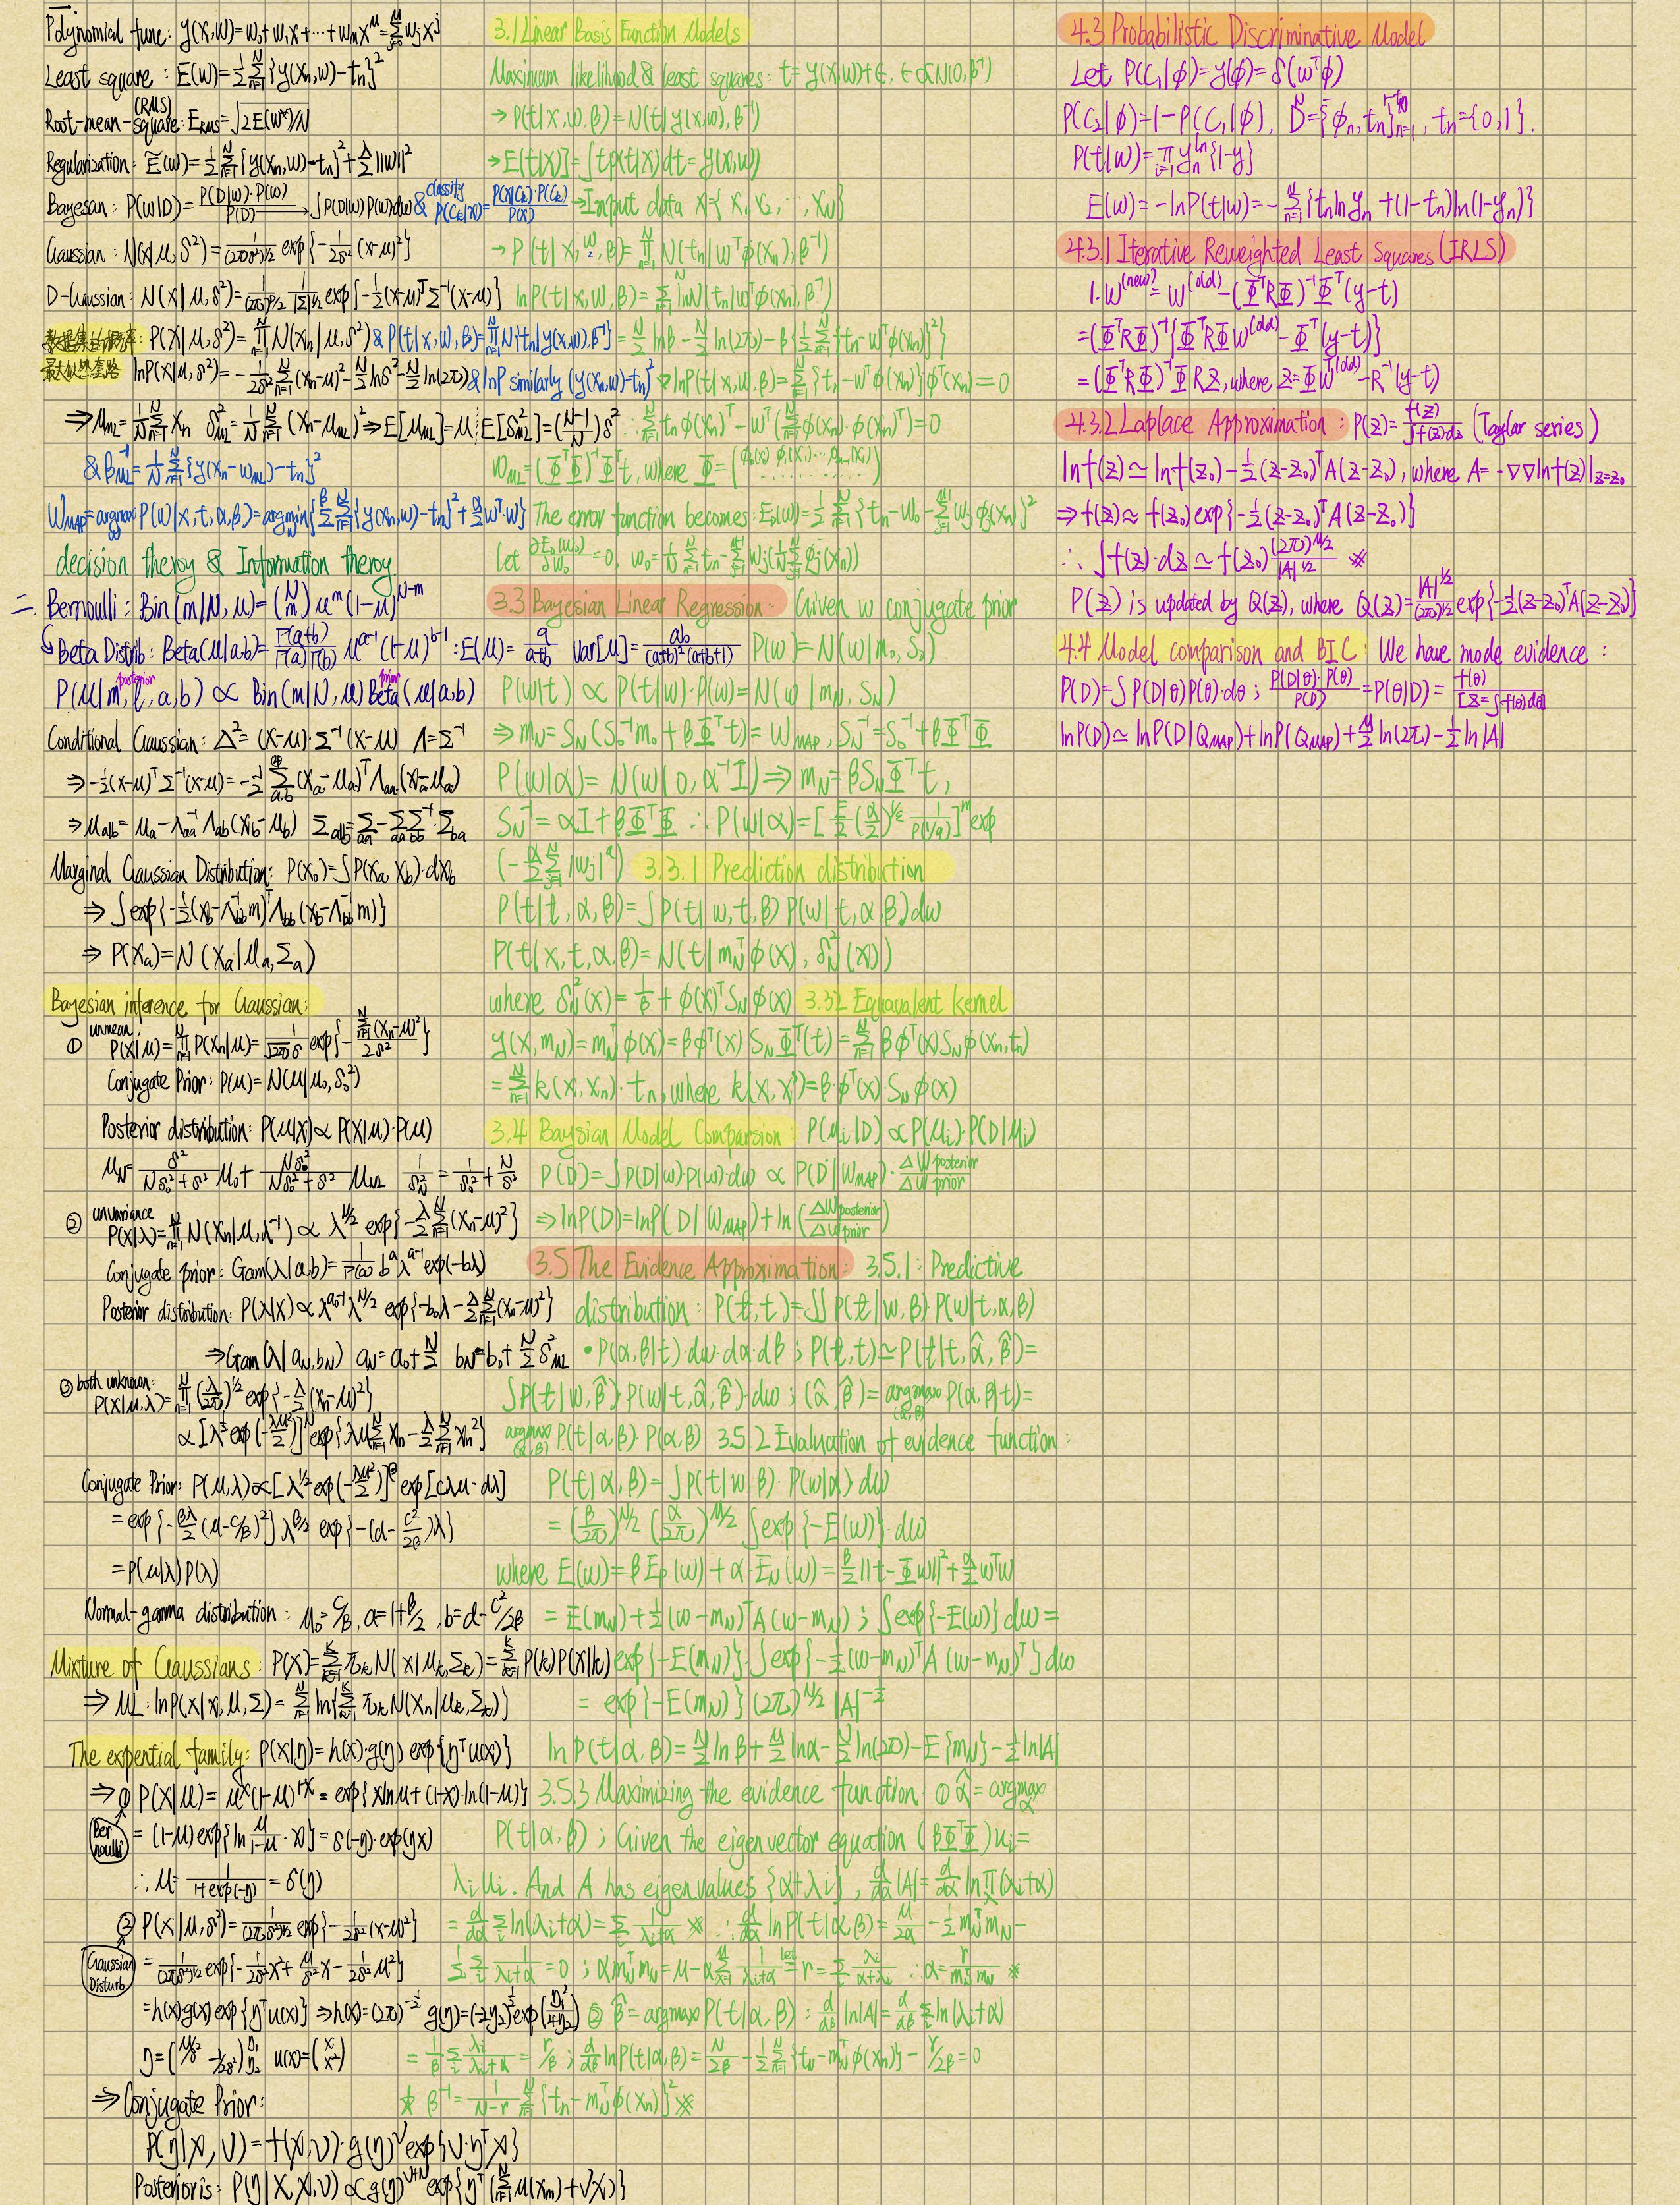 Polynomial func: y(x,w)=w₀+w₁x+⋯+w_m x^M=Σ_{j=0}^{M} w_j x^j
Least square: E(w)=½Σ_{n=1}^{N}{y(x_n,w)-t_n}²
Root-mean-square (RMS): E_RMS=√2E(w*)/N
Regularization: Ẽ(w)=½Σ_{n=1}^{N}{y(x_n,w)-t_n}²+λ/2||w||²
Bayesan: P(w|D)=P(D|w)·P(w)/P(D) → ∫P(D|w)P(w)dw & classify P(C_k|x)=P(x|C_k)·P(C_k)/P(x)
Gaussian: N(x|μ,δ²)=1/(2πδ²)^{1/2} exp{-1/2δ²(x-μ)²}
D-Gaussian: N(x|μ,δ²)=1/(2π)^{D/2} 1/|Σ|^{1/2} exp{-½(x-μ)^TΣ^{-1}(x-μ)}
数据集的概率: P(X|μ,δ²)=Π_{n=1}^{N}N(x_n|μ,δ²) & P(t|x,w,β)=Π_{n=1}^{N}N{t_n|y(x_n,w),β^{-1}}
最大似然套路 lnP(X|μ,δ²)=-1/2δ² Σ_{n=1}^{N}(x_n-μ)²-N/2 lnδ²-N/2 ln(2π) & lnP similarly (y(x_n,w)-t_n)²
⇒μ_ML=1/N Σ_{n=1}^{N}x_n δ²_ML=1/N Σ_{n=1}^{N}(x_n-μ_ML)²⇒E[μ_ML]=μ; E[δ²_ML]=((N-1)/N)δ²
& β_ML^{-1}=1/N Σ_{n=1}^{N}{y(x_n-w_ML)-t_n}²
W_MAP=argmax P(w|x,t,α,β)=argmin{β/2 Σ_{n=1}^{N}{y(x_n,w)-t_n}²+α/2 w^T·w}
decision theroy & Information theroy
二. Bernoulli: Bin(m|N,μ)=(N m)μ^m(1-μ)^{N-m}
Beta Distrib: Beta(μ|a,b)=Γ(a+b)/Γ(a)Γ(b) μ^{a-1}(1-μ)^{b-1}: E(μ)=a/a+b Var[μ]=ab/(a+b)²(a+b+1)
posterior prior
P(μ|m,l,a,b) ∝ Bin(m|N,μ)Beta(μ|a,b)
Conditional Gaussian: Δ²=(x-μ)·Σ^{-1}(x-μ) Λ=Σ^{-1}
⇒-½(x-μ)^TΣ^{-1}(x-μ)=-½Σ_{a,b}(x_a-μ_a)^TΛ_aa(x_a-μ_a)
⇒μ_a|b=μ_a-λ_aa^{-1}Λ_ab(x_b-μ_b) Σ_a|b=Σ_aa-Σ_abΣ_bb^{-1}·Σ_ba
Marginal Gaussian Distribution: P(x_a)=∫P(x_a,x_b)·dx_b
⇒∫exp{-½(x_b-Λ_bb^{-1}m)^TΛ_bb(x_b-Λ_bb^{-1}m)}
⇒P(x_a)=N(x_a|μ_a,Σ_a)
Bayesian inference for Gaussian:
① unmean: P(X|μ)=Π_{n=1}^{N}P(x_n|μ)=1/√2πδ exp{-Σ_{n=1}^{N}(x_n-μ)²/2δ²}
Conjugate Prior: P(μ)=N(μ|μ₀,δ₀²)
Posterior distribution: P(μ|X)∝P(X|μ)·P(μ)
μ_N=δ²/(Nδ₀²+δ²) μ₀+Nδ₀²/(Nδ₀²+δ²) μ_ML 1/δ_N²=1/δ₀²+N/δ²
② unvariance P(X|λ)=Π_{n=1}^{N}N(x_n|μ,λ^{-1}) ∝ λ^{N/2} exp{-λ/2 Σ_{n=1}^{N}(x_n-μ)²}
Conjugate prior: Gam(λ|a,b)=1/Γ(a) b^a λ^{a-1}exp(-bλ)
Posterior distribution: P(λ|X)∝λ^{a₀-1}λ^{N/2} exp{-b₀λ-λ/2 Σ_{n=1}^{N}(x_n-μ)²}
⇒Gam(λ|a_N,b_N) a_N=a₀+N/2 b_N=b₀+N/2 δ²_ML
③ both unknown: P(X|μ,λ)=Π_{n=1}^{N}(λ/2π)^{1/2} exp{-λ/2(x_n-μ)²}
∝[λ^{½}exp(-λμ²/2)]^N exp{λμΣ_{n=1}^{N}x_n-λ/2 Σ_{n=1}^{N}x_n²}
Conjugate Prior: P(μ,λ)∝[λ^{1/2}exp(-λμ²/2)]^β exp[cλμ-dλ]
=exp{-βλ/2(μ-c/β)²}λ^{β/2} exp{-(d-c²/2β)λ}
=P(μ|λ)P(λ)
Normal-gamma distribution: μ₀=c/β, a=1+β/2, b=d-c²/2β
Mixture of Gaussians: P(X)=Σ_{k=1}^{K}π_kN(x|μ_k,Σ_k)=Σ_{k=1}^{K}P(k)P(x|k)
⇒ML: lnP(X|π,μ,Σ)=Σ_{n=1}^{N}ln{Σ_{k=1}^{K}π_kN(x_n|μ_k,Σ_k)}
The expential family: P(x|η)=h(x)·g(η) exp{η^Tu(x)}
⇒① P(x|μ)=μ^x(1-μ)^{1-x}=exp{xlnμ+(1-x)·ln(1-μ)}
Bernoulli =(1-μ)exp{ln μ/1-μ ·x}=δ(-η)·exp(ηx)
∴μ=1/1+exp(-η)=δ(η)
② P(x|μ,δ²)=1/(2πδ²)^{1/2} exp{-1/2δ²(x-μ)²}
Gaussian Disturb =1/(2πδ²)^{1/2}exp{-1/2δ²x²+μ/δ²x-1/2δ²μ²}
=h(x)·g(x)exp{η^Tu(x)}⇒h(x)=(2π)^{-½} g(η)=(-2η₂)^{½}exp(η₁²/4η₂)
η=(μ/δ² -1/2δ²)η₁ η₂ u(x)=(x x²)
⇒Conjugate Prior:
P(η|X,ν)=f(X,ν)·g(η)^ν exp{ν·η^TX}
Posterior is: P(η|X,X,ν)∝g(η)^{ν+N}exp{η^T(Σ_{n=1}^{N}μ(x_n)+νX)}
3.1 Linear Basis Function Models
Maximum likelihood & least squares: t=y(x,w)+ϵ, ϵ∝N(0,β^{-1})
→P(t|x,w,β)=N(t|y(x,w),β^{-1})
→E(t|x)]=∫tp(t|x)dt=y(x,w)
→Input data X={x₁,x₂,⋯,x_N}
→P(t|x,w,β)=Π_{n=1}^{N}N(t_n|w^Tϕ(x_n),β^{-1})
lnP(t|x,w,β)=Σ_{n=1}^{N}lnN(t_n|w^Tϕ(x_n),β^{-1})
=N/2 lnβ-N/2 ln(2π)-β{½Σ_{n=1}^{N}{t_n-w^Tϕ(x_n)}²}
∇lnP(t|x,w,β)=Σ_{n=1}^{N}{t_n-w^Tϕ(x_n)}ϕ^T(x_n)=0
∴Σ_{n=1}^{N}t_nϕ(x_n)^T-w^T(Σ_{n=1}^{N}ϕ(x_n)·ϕ(x_n)^T)=0
w_ML=(Φ^TΦ)^{-1}Φ^Tt, where Φ=(ϕ₀(x₁) ϕ₁(x₁)⋯ϕ_{m-1}(x₁) ⋯⋯)
The error function becomes: E_D(w)=½Σ_{n=1}^{N}{t_n-w₀-Σ_{j=1}^{M-1}w_jϕ_j(x_n)}²
let ∂E_D(w₀)/∂w₀=0, w₀=1/N Σ_{n=1}^{N}t_n-Σ_{j=1}^{M-1}w_j(1/N Σ_{n=1}^{N}ϕ_j(x_n))
3.3 Bayesian Linear Regression: Given w conjugate prior
P(w)=N(w|m₀,S₀)
P(w|t)∝P(t|w)·P(w)=N(w|m_N,S_N)
⇒m_N=S_N(S₀^{-1}m₀+βΦ^Tt)=W_MAP, S_N^{-1}=S₀^{-1}+βΦ^TΦ
P(w|α)=N(w|0,α^{-1}I)⇒m_N=βS_NΦ^Tt,
S_N^{-1}=αI+βΦ^TΦ ∴P(w|α)=[q/2(α/2)^{1/q} 1/Γ(1/q)]^m exp
(-α/2 Σ_{j=1}^{M}|w_j|^q) 3.3.1 Prediction distribution
P(t|t,α,β)=∫P(t|w,t,β)P(w|t,α,β)dw
P(t|x,t,α,β)=N(t|m_N^Tϕ(x),δ_N²(x))
where δ_N²(x)=1/β+ϕ(x)^TS_Nϕ(x) 3.32 Equavalent kernel
y(x,m_N)=m_N^Tϕ(x)=βϕ^T(x)S_NΦ^T(t)=Σ_{n=1}^{N}βϕ^T(x)S_Nϕ(x_n,t_n)
=Σ_{n=1}^{N}k(x,x_n)·t_n, where k(x,x')=β·ϕ^T(x)·S_Nϕ(x)
3.4 Baysian Model Comparsion: P(M_i|D)∝P(M_i)·P(D|M_i)
P(D)=∫P(D|w)P(w)·dw ∝ P(D|W_MAP)·ΔW posterior/ΔW prior
⇒lnP(D)=lnP(D|W_MAP)+ln(ΔW posterior/ΔW prior)
3.5 The Evidence Approximation: 3.5.1: Predictive
distribution: P(t,t)=∬P(t|w,β)P(w|t,α,β)
•P(α,β|t)·dw·dα·dβ; P(t,t)≃P(t|t,α̂,β̂)=
∫P(t|w,β̂)P(w|t,α̂,β̂)·dw; (α̂,β̂)=argmax_(α,β) P(α,β|t)=
argmax_(α,β) P(t|α,β)·P(α,β) 3.5.2 Evaluation of evidence function:
P(t|α,β)=∫P(t|w,β)·P(w|α)dw
=(β/2π)^{N/2}(α/2π)^{M/2}∫exp{-E(w)}·dw
where E(w)=βE_D(w)+α·E_N(w)=β/2||t-Φw||²+α/2 w^Tw
=E(m_N)+½(w-m_N)^TA(w-m_N); ∫exp{-E(w)}dw=
exp{-E(m_N)}·∫exp{-½(w-m_N)^TA(w-m_N)^T}dw
=exp{-E(m_N)}(2π)^{N/2}|A|^{-½}
lnP(t|α,β)=N/2 lnβ+M/2 lnα-N/2 ln(2π)-E{m_N}-½ln|A|
3.5.3 Maximizing the evidence function: ① α̂=argmax_α
P(t|α,β); Given the eigenvector equation (βΦ^TΦ)u_i=
λ_iμ_i. And A has eigenvalues {α+λ_i}, d/dα|A|=d/dα lnΠ(λ_i+α)
=d/dα Σ_i ln(λ_i+α)=Σ_i 1/λ_i+α ※ ∴d/dα lnP(t|α,β)=M/2α-½m_N^Tm_N-
½Σ_i 1/λ_i+α=0; αm_N^Tm_N=M-αΣ 1/λ_i+α let= r=Σ_i λ_i/α+λ_i ∴α=r/m_N^Tm_N ※
② β̂=argmaxP(t|α,β): d/dβ ln|A|=d/dβ Σ_i ln(λ_i+α)
=1/β Σ_i λ_i/λ_i+α=r/β; d/dβ lnP(t|α,β)=N/2β-½Σ_{n=1}^{N}{t_n-m_N^Tϕ(x_n)}-r/2β=0
※ β^{-1}=1/N-r Σ_{n=1}^{N}{t_n-m_N^Tϕ(x_n)}² ※
4.3 Probabilistic Discriminative Model
Let P(C₁|ϕ)=y(ϕ)=δ(w^Tϕ)
P(C₂|ϕ)=1-P(C₁|ϕ), D={ϕ_n,t_n}_{n=1}^{N}, t_n={0,1}.
P(t|w)=Π y_n^{t_n}{1-y}
E(w)=-lnP(t|w)=-Σ_{n=1}^{N}{t_nlny_n+(1-t_n)ln(1-y_n)}
4.3.1 Iterative Reweighted Least Squares (IRLS)
1. w^(new)=w^(old)-(Φ^TRΦ)^{-1}Φ^T(y-t)
=(Φ^TRΦ)^{-1}{Φ^TRΦw^(old)-Φ^T(y-t)}
=(Φ^TRΦ)^{-1}ΦRz, where z=Φw^(old)-R^{-1}(y-t)
4.3.2 Laplace Approximation: P(z)=f(z)/∫f(z)dz (Taylar series)
lnf(z)≃lnf(z₀)-½(z-z₀)^TA(z-z₀), where A=-∇∇lnf(z)|z=z₀
⇒f(z)≃f(z₀)exp{-½(z-z₀)^TA(z-z₀)}
∴∫f(z)·dz≃f(z₀)(2π)^{M/2}/|A|^{1/2} ※
P(z) is updated by Q(z), where Q(z)=|A|^{1/2}/(2π)^{M/2} exp{-½(z-z₀)^TA(z-z₀)}
4.4 Model comparison and BIC: We have mode evidence:
P(D)=∫P(D|θ)P(θ)·dθ; P(D|θ)·P(θ)/P(D)=P(θ|D)=f(θ)/[z=∫f(θ)dθ]
lnP(D)≃lnP(D|Q_MAP)+lnP(Q_MAP)+M/2 ln(2π)-½ln|A|